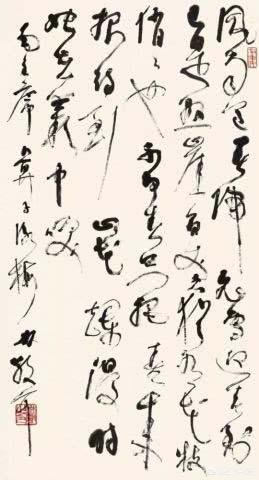 风雨送春归飞雪迎春到
已是悬崖百丈冰犹有花枝
俏〻也不争春只把春来
报待到山花烂漫时
她在丛中笑
毛主席卜算子咏梅 林散耳